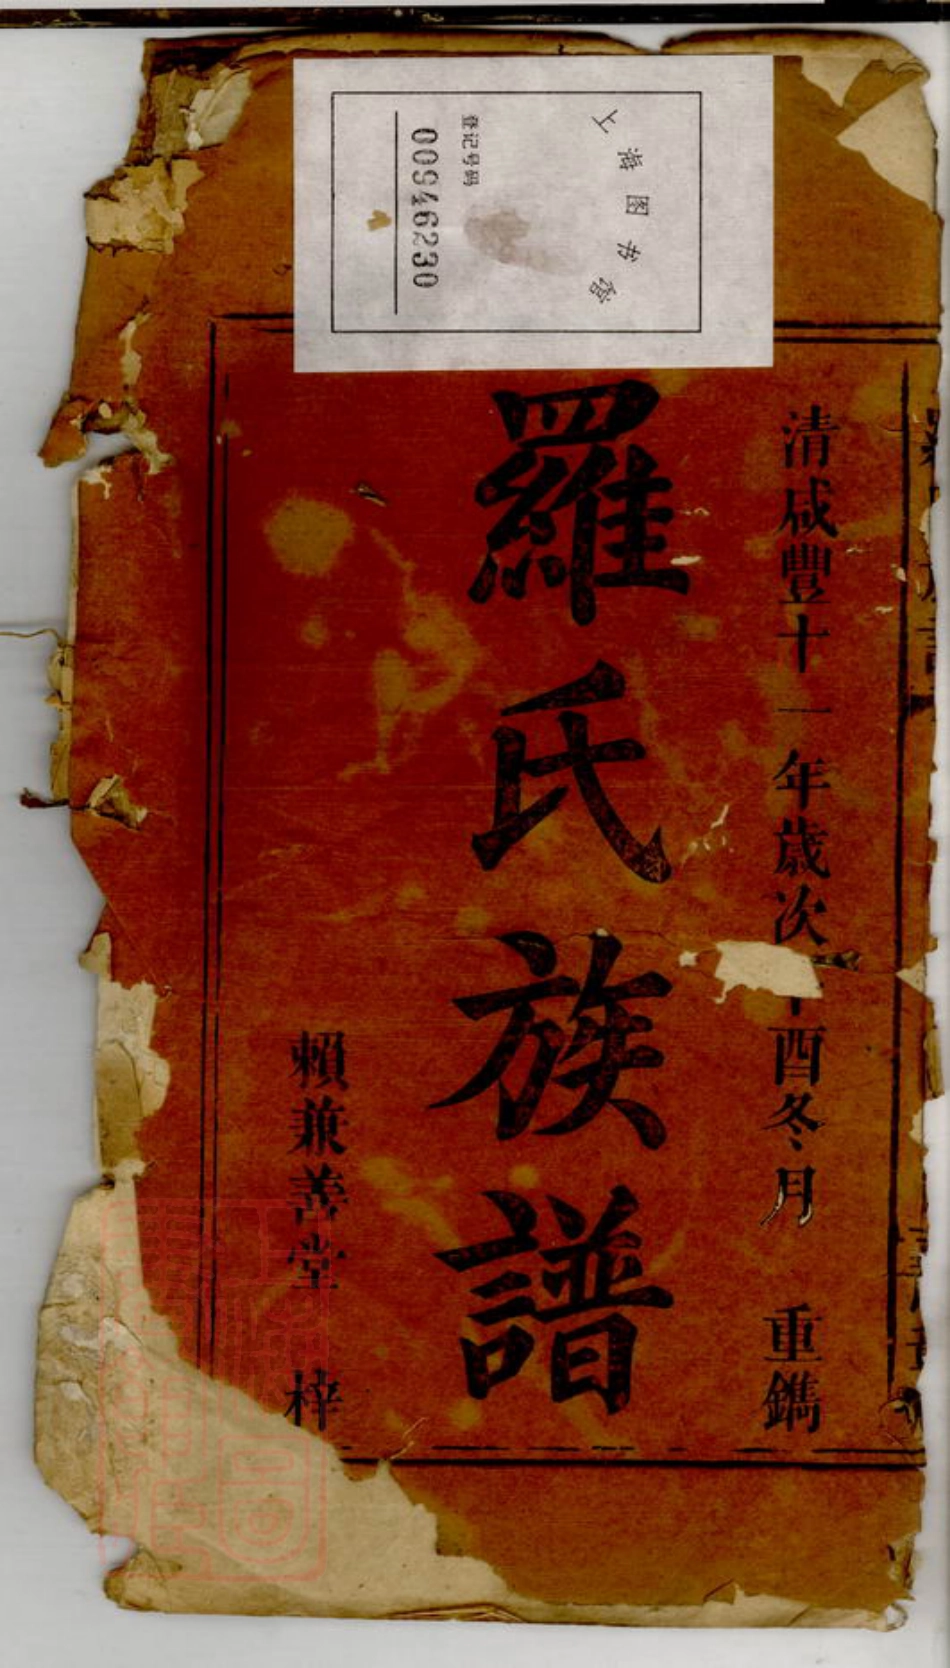 上海图书馆
登记号码
00946230
清咸豐十一年歲次 酉冬月 重鐫
羅氏族譜
賴兼善堂 梓